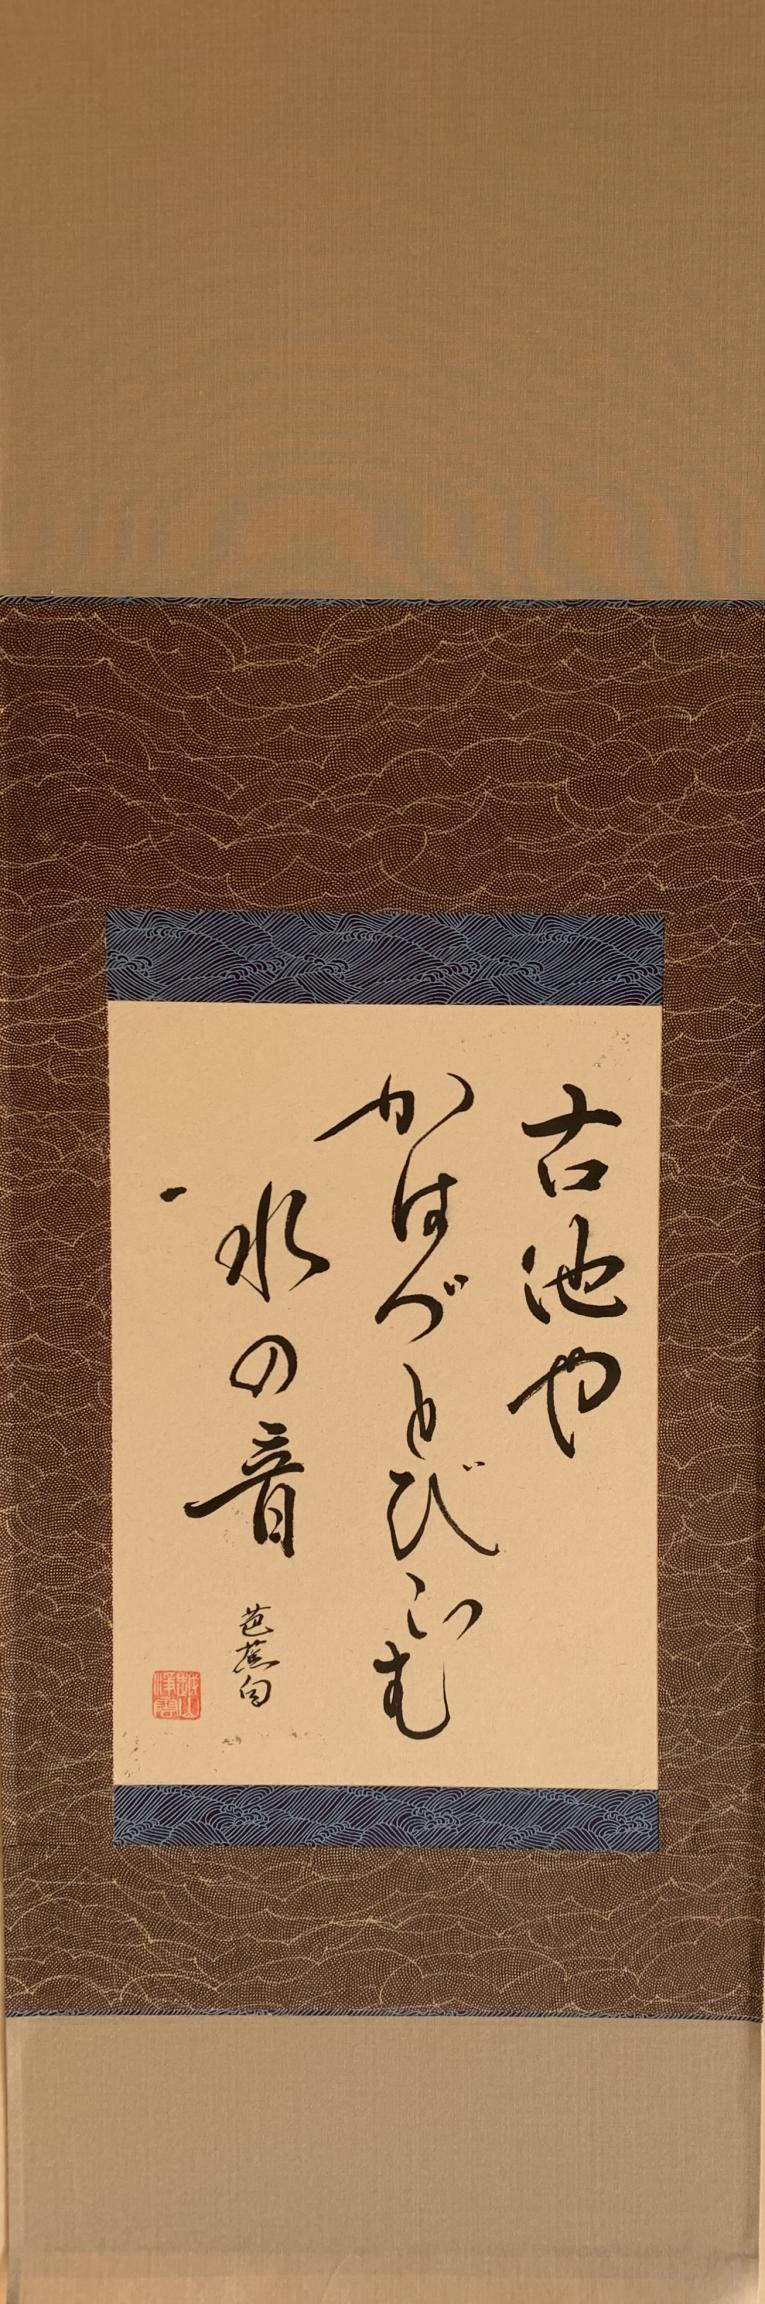 古池や
かはづとびこむ
水の音
芭蕉句